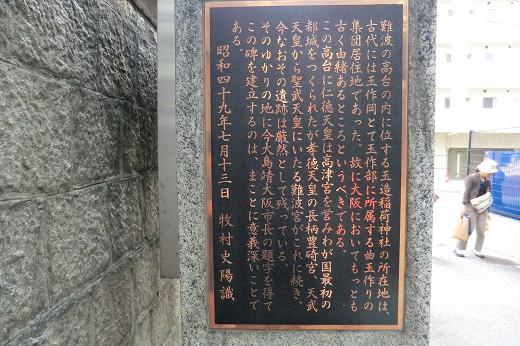 難波の高台の内に位する玉造稲荷神社の所在地は、
古代には玉作岡とて玉作部に所属する曲玉作りの
集団居住地であった。故に大阪においてもっとも
古く由緒あるところというべきである。
この高台に仁徳天皇は高津宮を営みわが国最初の
都城をつくられたが孝徳天皇の長柄豊碕宮、天武
天皇から聖武天皇にいたる難波宮がこれに続き、
今なおその遺跡は厳然として残っている。
そのゆかりの地に今大島靖大阪市長の題字を得て
この碑を建立するのは、まことに意義深いことで
ある。
昭和四十九年七月十三日 牧村史陽識